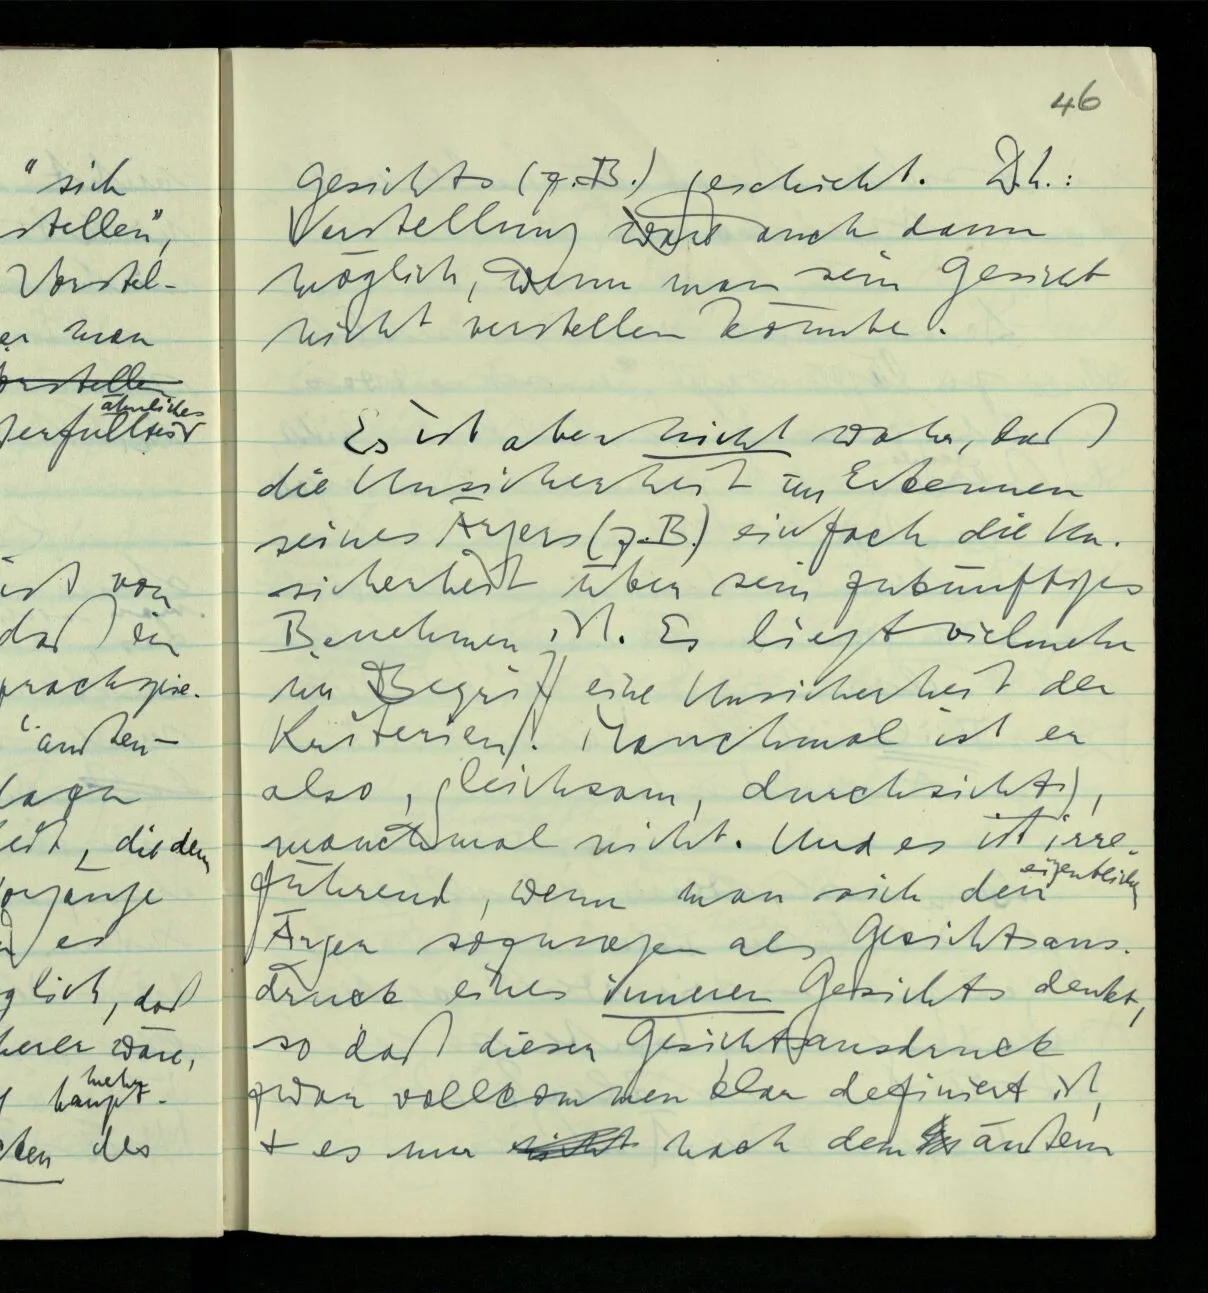 46
" sich
stellen",
Vorstel-
er man
vorstellen
ähnliches
erfüllt ist
ist von
daß ein
prachspie-
"außen-
lagen
heit, die dem
Vorgänge
es
glich, daß
herer wäre,
mehr
haupt-
cken des
Gesichts (z.B.) geschieht. D.h.:
Vorstellung wäre auch dann
möglich, wenn man sein Gesicht
nicht verstellen könnte.
Es ist aber nicht wahr, daß
die Unsicherheit im Erkennen
seines Ärgers (z.B.) einfach die Un-
sicherheit über sein zukünftiges
Benehmen ist. Es liegt vielmehr
im Begriff eine Unsicherheit der
Kriterien. Manchmal ist er
also, gleichsam, durchsichtig,
manchmal nicht. Und es ist irre-
führend, wenn man sich den eigentlichen
Ärger sozusagen als Gesichtsaus-
druck eines inneren Gesichts denkt,
so daß dieser Gesichtsausdruck
zwar vollkommen klar definiert ist,
+ es nur nicht nach dem äußern